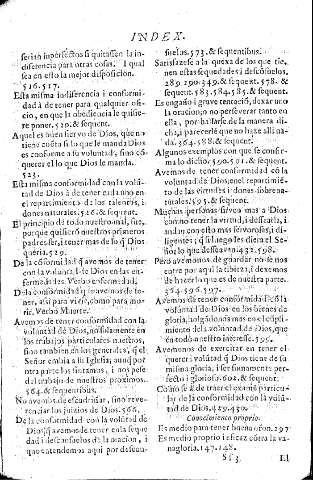 INDEX.
seriãn imperfectos si quitassen la in-
diferencia para otras cosas. I qual
sea en esto la mejor disposicion.
516.517.
Esta misma indiferencia i conformi-
dad à de tener para qualquier ofi-
cio, en que la obediencia le quisie-
re poner. 520. & sequent.
Aquel es buen siervo de Dios, que no
tiene cuẽta si lo que le manda Dios
es conforme a su voluntad, sino cõ
querer el lo que Dios le manda.
523.
Esta misma conformidad con la volũ-
tad de Dios à de tener cada uno en
el repartimiento de los talentos, i
dones naturales. 526. & sequent.
El principio de todo nuestro mal, fue,
porque quisierõ nuestros primeros
padres ser, i tener mas de lo q̃ Dios
queria. 529.
De la conformidad q̃ avemos de tener
con la volunta l de Dios en las en-
fermedades. Verbo enfermedad.
De la conformidad q̃ avemos de to-
ner, assi para vivir, como para mo-
rir. Verbo Muerte.
Avemos de tener conformidad con la
voluntad de Dios, no solamente en
los trabajos particulares nuestros,
sino tambien en los generales, q̃ el
Señor embia a su Iglesia; aunq̃ por
otra parte los sintamos, i nos pese
del trabajo de nuestros proximos.
564. & sequentibus.
No avemos de escudriñar, sino reve-
renciar los juizios de Dios. 566.
De la conformidad con la volũtad de
Dios q̃ avemos de tener en la seque
dad i desconsuelos de la oracion, i
que entendemos aqui por descon-
suelos. 573. & sequentibus.
Satisfazese a la quexa de los que tie-
nen estas sequedades i descõsuelos.
289. 290. 349. & sequent. 578. &
sequent. 583. 584. 585. & sequent.
Es engaño i grave tentació, dexar uno
la oracion, o no perseverar tanto en
ella, por hallarse de la manera di-
cha, i parecerle que no haze alli na-
da. 564. 588. & sequent.
Algunos exemplos con que se confir-
ma lo dicho. 590. 591. & sequent.
Avemos de tener conformidad cõ la
volũtad de Dios, en el repartimiẽ-
to de las virtudes i dones sobrena-
turales. 595. & sequent.
Muchas personas sirvẽ mas a Dios
con no tener la virtud, i desseãrla,
andan con esto mas fervorosas, i di-
ligentes (q̃ si luego les diera el Se-
ñor lo que desseavan. 432. 598.
Pero avemonos de guardar no se nos
entre por aqui la tibieza, i dexemos
de hazer lo que es de nuestra parte.
554. 596. 597.
Avemos de tener conformidad cõ la
volũtad de Dios en los bienes de
gloria, holgandonos mas en el cũpli-
miento de la voluntad de Dios, que
en todo nuestro interesse. 599.
Avemonos de exercitar en tener el
querer i volũtad q̃ Dios tiene de su
misma gloria, i ser sumamente per-
fecto i glorioso. 602. & sequent.
Como se à de traer el exame particu-
lar de la conformidad con la volũ-
tad de Dios. 429. 430.
Conocimiento proprio.
Es medio para tener buena oraciõ. 297
Es medio proprio i eficaz cõtra la va-
nagloria. 147. 148.
Sf 3. El